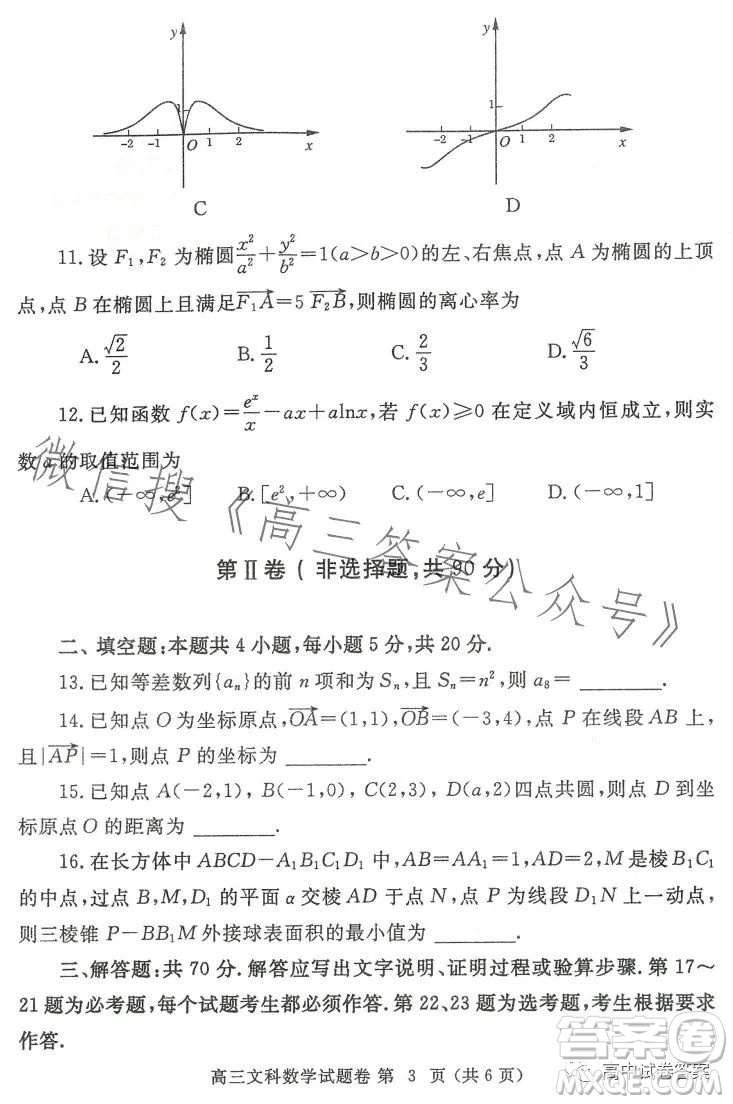 y
y
1
1
-2 -1 O 1 2 x
-2 -1 O 1 2 x
C
D
11.设 F₁,F₂ 为椭圆x²/a²+y²/b²=1(a>b>0)的左、右焦点,点 A 为椭圆的上顶
点,点 B 在椭圆上且满足F₁A→=5 F₂B→,则椭圆的离心率为
A.√2/2 B.1/2 C.2/3 D.√6/3
12.已知函数 f(x)=eˣ/x-ax+alnx,若 f(x)≥0 在定义域内恒成立,则实
数 a 的取值范围为
A.(-∞,e²] B.[e²,+∞) C.(-∞,e] D.(-∞,1]
第Ⅱ卷(非选择题,共 90 分)
二、填空题:本题共 4 小题,每小题 5 分,共 20 分.
13.已知等差数列{aₙ}的前 n 项和为 Sₙ,且 Sₙ=n²,则 a₈= ________.
14.已知点 O 为坐标原点,OA→=(1,1),OB→=(-3,4),点 P 在线段 AB 上,
且|AP→|=1,则点 P 的坐标为 ________.
15.已知点 A(-2,1),B(-1,0),C(2,3),D(a,2)四点共圆,则点 D 到坐
标原点 O 的距离为 ________.
16.在长方体中 ABCD-A₁B₁C₁D₁ 中,AB=AA₁=1,AD=2,M 是棱 B₁C₁
的中点,过点 B,M,D₁ 的平面 α 交棱 AD 于点 N,点 P 为线段 D₁N 上一动点,
则三棱锥 P-BB₁M 外接球表面积的最小值为 ________.
三、解答题:共 70 分.解答应写出文字说明、证明过程或验算步骤.第 17~
21 题为必考题,每个试题考生都必须作答.第 22、23 题为选考题,考生根据要求
作答.
高三文科数学试题卷 第 3 页(共 6 页)
微信搜《高三答案公众号》
答案圈
高中试卷答案
MXQE.COM